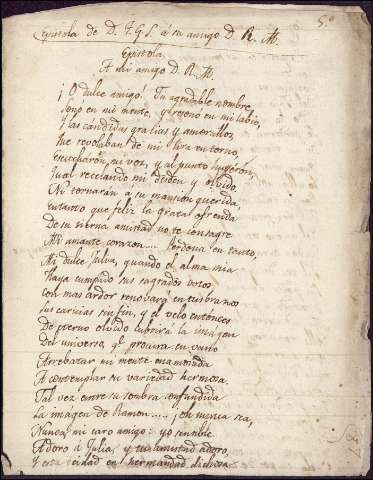 5.º
Epistola de D. F. G. S. á su amigo D. R. M.
Epistola.
A mi amigo D. R. M.
¡O dulce amigo! Tu agradable nombre,
Sonó en mi mente, y resonó en mi labio,
Y las cándidas gracias y amorcillos,
Que revolaban de mi lira en torno
Escucharon su voz, y al punto huyeron,
Qual recelando mi desden y olvido,
Ni tornarán a su mansion querida,
Entanto que feliz la grata ofrenda
De su tierna amistad no te consagre
Mi amante corazon.... Perdona en tanto,
Mi dulce Julia, quando el alma mia
Haya cumplido sus sagrados votos
Con mas ardor renobará en tus brazos
Sus caricias sin fin, y el velo entonces
De eterno olvido cubrirá la imagen
Del universo, q.e procura en vano
Arrebatar mi mente enamorada
A contemplar su variedad hermosa.
Tal vez entre su sombra confundida
La imagen de Ramon.... ¡oh nunca sea,
Nunca, mi caro amigo: yo sensible
Adoro á Julia, y tu amistad adoro,
Y esta deidad en hermandad dichosa